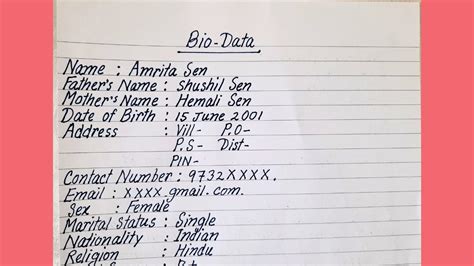 Bio-Data
Name : Amrita Sen
Father's Name : Shushil Sen
Mother's Name : Hemali Sen
Date of Birth : 15 June 2001
Address : Vill- P.O-
P.S- Dist-
PIN-
Contact Number : 9732XXXX.
Email : xxxx.gmail.com.
Sex : Female
Marital Status : Single
Nationality : Indian
Religion : Hindu